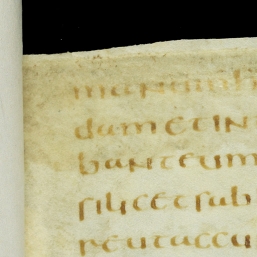 manumh
dametin
banteum
silicetsub
reutaccu